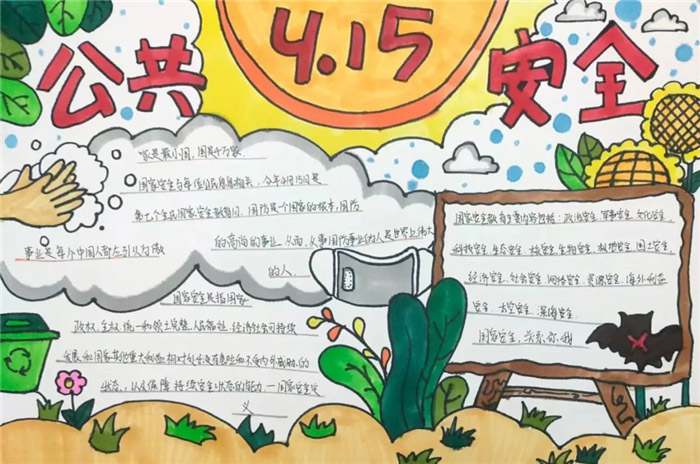 公共
4.15
安全
家是最小国,国是千万家.
国家安全与每位公民息息相关,今年4月15日是
第七个全民国家安全教育日,国防是个国家的根本,国防
事业是每个中国人都为引以为傲
的高尚的事业,从而,从事国防事业的人是世界上伟大
的人.
国家安全是指国家
政权、主权、统一和领土完整、人民福祉、经济社会可持续
发展和国家其他重大利益相对处于没有危险和不受内外威胁的
状态,以及保障持续安全状态的能力.—国家安全定
义
国家安全教育主要内容包括:政治安全.军事安全.文化安全.
科技安全.生态安全.核安全.生物安全.极地安全.国土安全.
经济安全.社会安全.网络安全.资源安全.海外利益
安全.太空安全.深海安全.
国家安全,关系你我